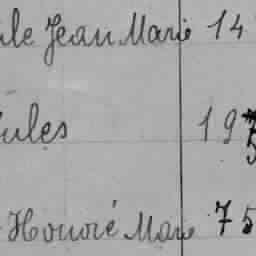 Jean Marie 14
Jules 19
Honoré Marie 75